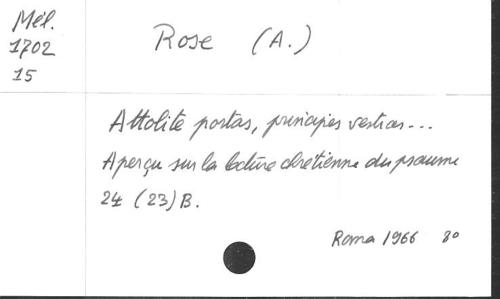 Mél.
1702
15
Rose (A.)
Attolite portas, principes vestras...
Aperçu sur la lecture chrétienne du psaume
24 (23) B.
Roma 1966 8º